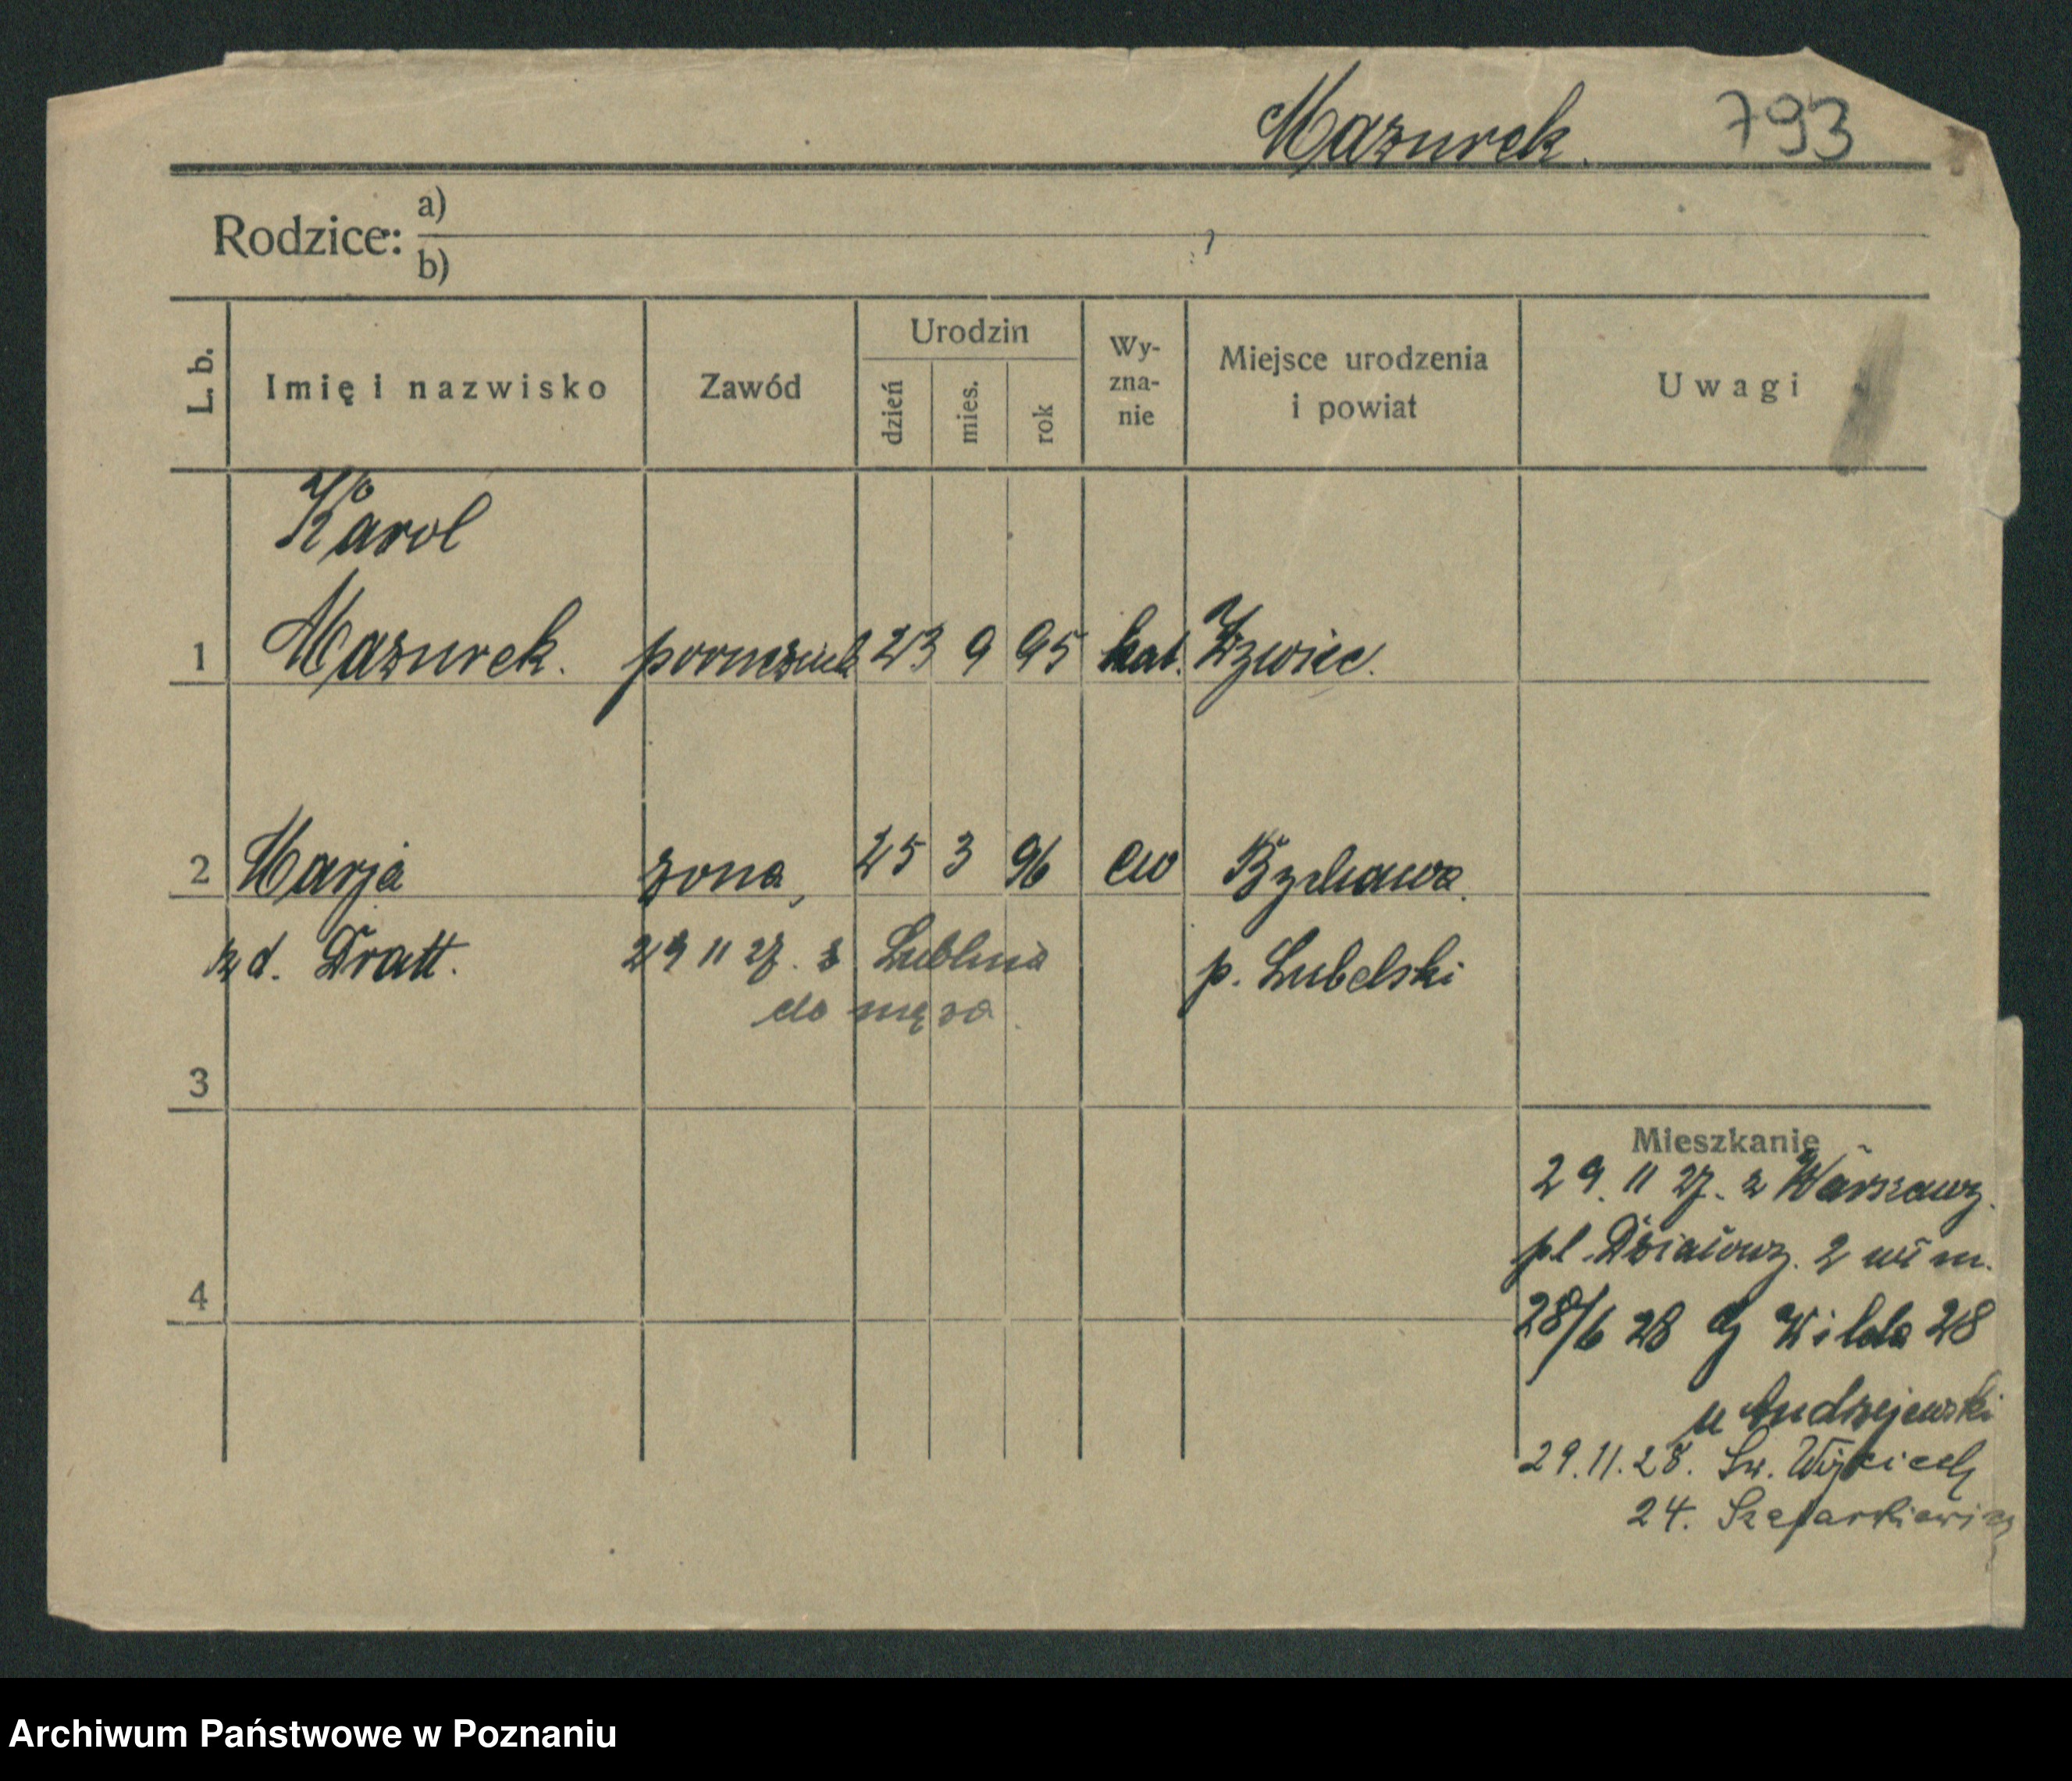 Mazurek. 793
Rodzice: a)
b)
L. b. Imię i nazwisko Zawód Urodzin dzień mies. rok Wy-zna-nie Miejsce urodzenia i powiat Uwagi
Karol
1 Mazurek. porucznik 23 9 95 kat. Żywiec.
2 Marja żona, 25 3 96 ew Bychawa.
z d. Dratt. 29 11 27. z Lublina p. Lubelski
do męża.
3
Mieszkanie
29. 11 27. z Warszawy.
pl. Działowy. 2 m.
4
28/6 28 Wilda 28
u Andrzejewski
29.11.28. Św. Wojciech
24.
Archiwum Państwowe w Poznaniu